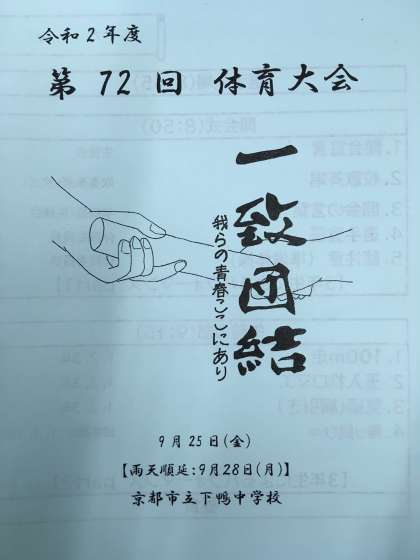 令和2年度
第 72 回 体育大会
一致団結
我らの青春ここにあり
9月25日(金)
【雨天順延:9月28日(月)】
京都市立下鴨中学校